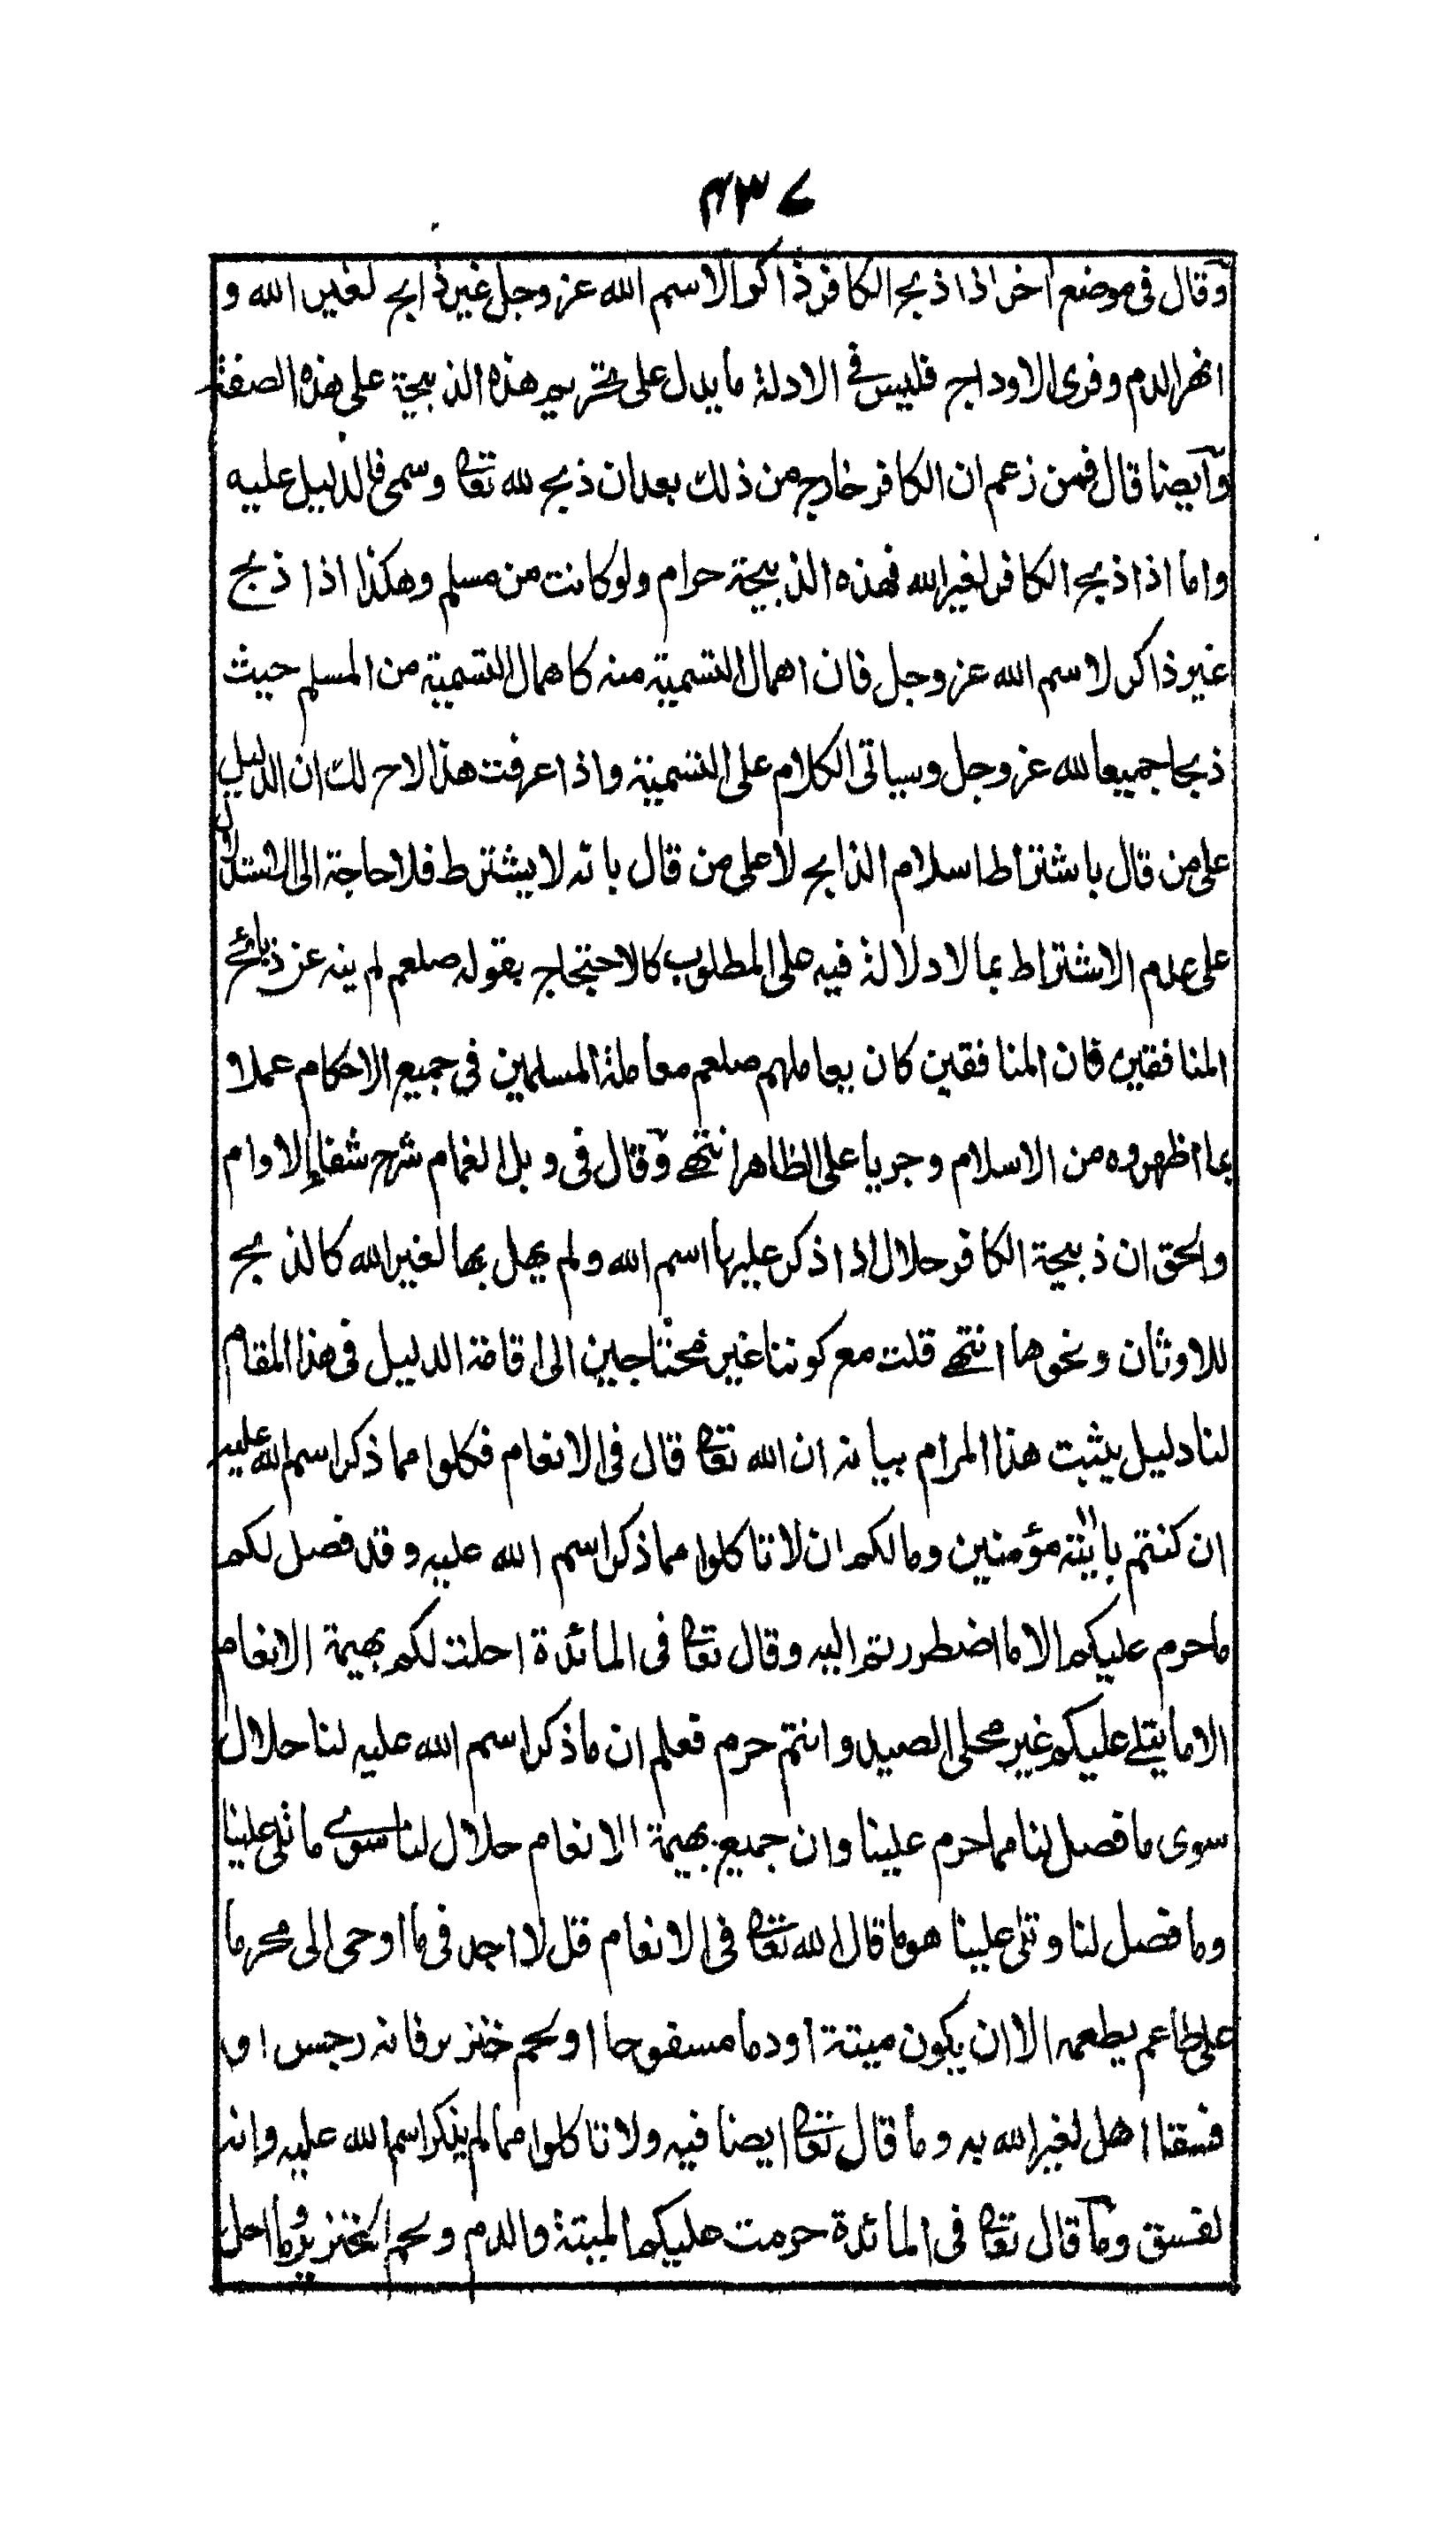 ۴۳۷
وقال فی موضع اخر اذا ذبح الکافر ذاکرا لاسم الله عز وجل غیر ذابح لغیر الله و
انهر الدم وفری الاوداج فلیس فے الادلة ما یدل علی تحریم هذه الذبیحة علی هذه الصفة
وایضا قال فمن زعم ان الکافر خارج من ذلك بعد ان ذبح لله تعا وسمی فالدلیل علیه
واما اذا ذبح الکافر لغیر الله فهذه الذبیحة حرام ولو کانت من مسلم وهکذا اذا ذبح
غیر ذاکر لاسم الله عز وجل فان اهمال التسمیة منه کاهمال التسمیة من المسلم حیث
ذبحا جمیعا لله عز وجل وسیاتی الکلام علی التسمیة واذا عرفت هذا لاح لك ان الدلیل
علی من قال باشتراط اسلام الذابح لا علی من قال بانه لا یشترط فلا حاجة الی الاستدلال
علی عدم الاشتراط بما لا دلالة فیه علی المطلوب کالاحتجاج بقوله صلعم لم ینه عن ذبائح
المنافقین فان المنافقین کان یعاملهم صلعم معاملة المسلمین فی جمیع الاحکام عملا
بما اظهروه من الاسلام وجریا علی الظاهر انتهے وقال فی وبل الغمام شرح شفاء الاوام
والحق ان ذبیحة الکافر حلال اذا ذکر علیها اسم الله ولم یهل بها لغیر الله کالذبح
للاوثان ونحوها انتهے قلت مع کوننا غیر محتاجین الی اقامة الدلیل فی هذا المقام
لنا دلیل یثبت هذا المرام بیانه ان الله تعا قال فی الانعام فکلوا مما ذکر اسم الله علیه
ان کنتم باٰیٰته مؤمنین وما لکم ان لا تاکلوا مما ذکر اسم الله علیه وقد فصل لکم
ما حرم علیکم الا ما اضطررتم الیه وقال تعا فی المائدة احلت لکم بهیمة الانعام
الا ما یتلے علیکم غیر محلی الصید وانتم حرم فعلم ان ما ذکر اسم الله علیه لنا حلال
سوی ما فصل لنا مما حرم علینا وان جمیع بهیمة الانعام حلال لنا سوے ما تلی علینا
وما فصل لنا وتلی علینا هو ما قال الله تعا فی الانعام قل لا اجد فی ما اوحی الی محرما
علی طاعم یطعمه الا ان یکون میتة او دما مسفوحا او لحم خنزیر فانه رجس او
فسقا اهل لغیر الله به وما قال تعا ایضا فیه ولا تاکلوا مما لم یذکر اسم الله علیه وانه
لفسق وما قال تعا فی المائدة حرمت علیکم المیتة والدم ولحم الخنزیر وما اهل